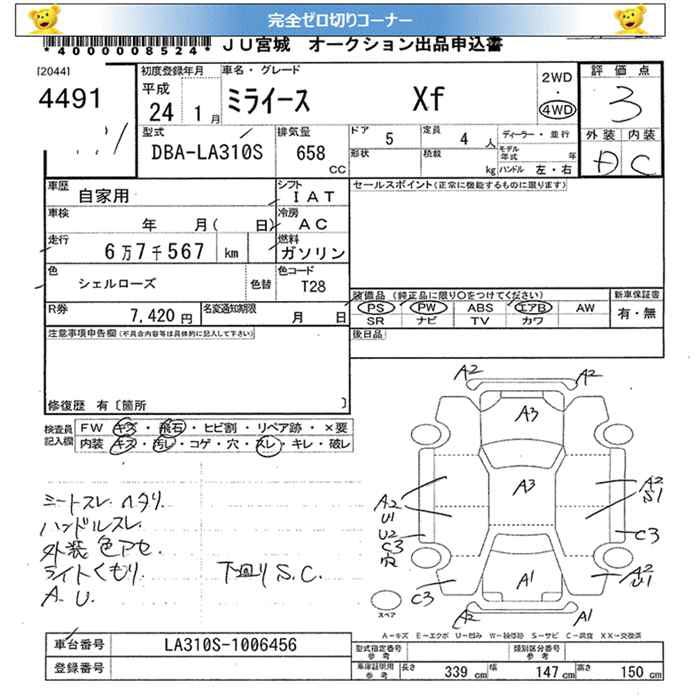 完全ゼロ切りコーナー
*4000008524*
JU宮城 オークション出品申込書
[2044]
4491
初度登録年月
平成
24 1月
車名・グレード
ミライース Xf
2WD
・
4WD
評価点
3
型式
DBA-LA310S
排気量
658 CC
ドア 5
定員 4人
形状
積載 kg
ディーラー・並行
モデル年式 年
ハンドル 左・右
外装 内装
D C
車歴 自家用
シフト IAT
車検 年 月( 日)
冷房 AC
走行 6万7千567 km
燃料 ガソリン
色 シェルローズ
色替
色コード T28
R券 7,420円
名変通知期限 月 日
セールスポイント(正常に機能するものに限ります)
装備品(純正品に限り〇をつけてください)
新車保証書
PS PW ABS エアB AW
有・無
SR ナビ TV カワ
後日品
注意事項申告欄(不具合内容等は具体的に記入して下さい)
修復歴 有〔箇所 〕
検査員記入欄
FW キズ・飛石・ヒビ割・リペア跡・×要
内装 キズ・汚レ・コゲ・穴・スレ・キレ・破レ
シートスレ ヘタリ.
ハンドルスレ.
外装 色アセ
ライトくもり.
A.U.
下回り S.C.
A2 A2
A3
A3
A2
U1
A2
S1
U2
C3
穴
C3
C3
A1
A2
U1
A2
A1
スペア
A-キズ E-エクボ U-凹み W-補修跡 S-サビ C-腐食 XX-交換済
車台番号 LA310S-1006456
登録番号
型式指定番号 参考
類別区分番号 参考
車庫証明用 参考
長さ 339 cm 幅 147 cm 高さ 150 cm